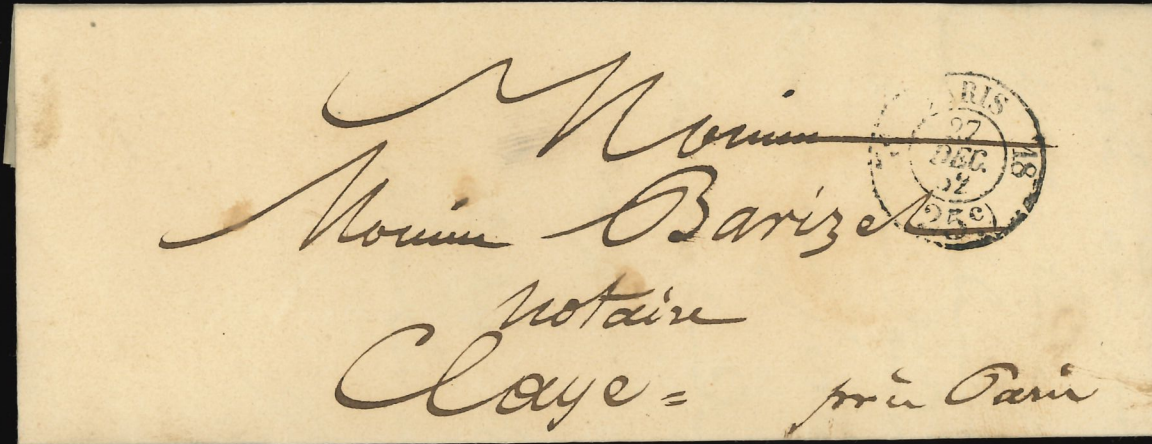 Monsieur
Monsieur Barizel
notaire
Claye = près Paris
PARIS
27
DEC.
52
18
25c